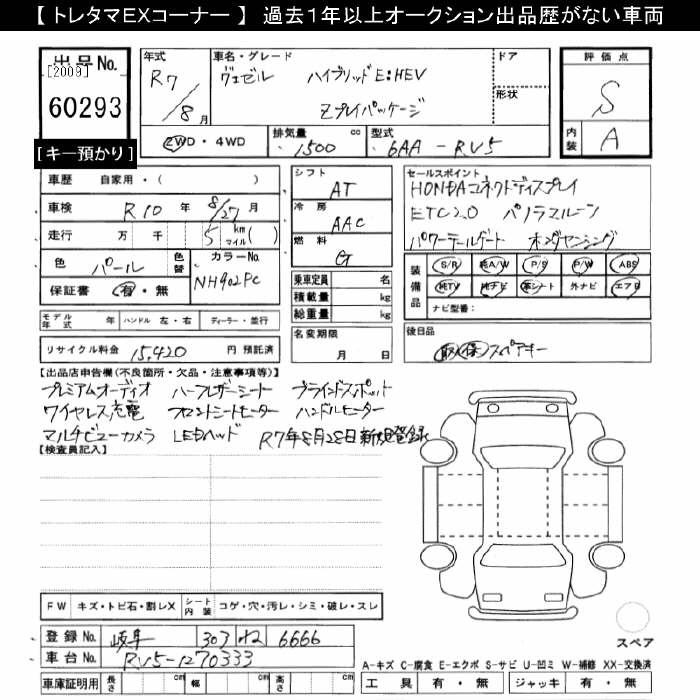 【 トレタマEXコーナー 】 過去1年以上オークション出品歴がない車両
出品No.
[2009]
60293
[キー預かり]
年式 R7/8月
車名・グレード ヴェゼル ハイブリッドE:HEV
Zプレイパッケージ
ドア
形状
評価点
S
内装 A
2WD・4WD 排気量 1500 cc 型式 6AA-RV5
車歴 自家用・( )
車検 R10年 8/27月
走行 万 千 5 km マイル( )
色 パール 色替 カラーNo. NH902PC
保証書 有・無
シフト AT
冷房 AAC
燃料 G
乗車定員 名
積載量 kg
総重量 kg
セールスポイント
HONDAコネクトディスプレイ
ETC2.0 パノラマルーフ
パワーテールゲート ホンダセンシング
装備品 S/R 純A/W P/S P/W ABS
純TV 純ナビ 革シート 外ナビ エアB
ナビ型番:
モデル年式 年 ハンドル 左・右 ディーラー・並行
名変期限 月 日
後日品
取 保 スペアキー
リサイクル料金 15,420 円 預託済
【出品店申告欄(不良箇所・欠品・注意事項等)】
プレミアムオーディオ ハーフレザーシート ブラインドスポット
ワイヤレス充電 フロントシートヒーター ハンドルヒーター
マルチビューカメラ LEDヘッド R7年8月28日新規登録
【検査員記入】
FW キズ・トビ石・割レX シート内装 コゲ・穴・汚レ・シミ・破レ・スレ
登録No. 岐阜 303 ね 6666
車台No. RV5-1270333
車庫証明用 長さ cm 幅 cm 高さ cm
スペア
A-キズ C-腐食 E-エクボ S-サビ U-凹ミ W-補修 XX-交換済
工具 有・無 ジャッキ 有・無